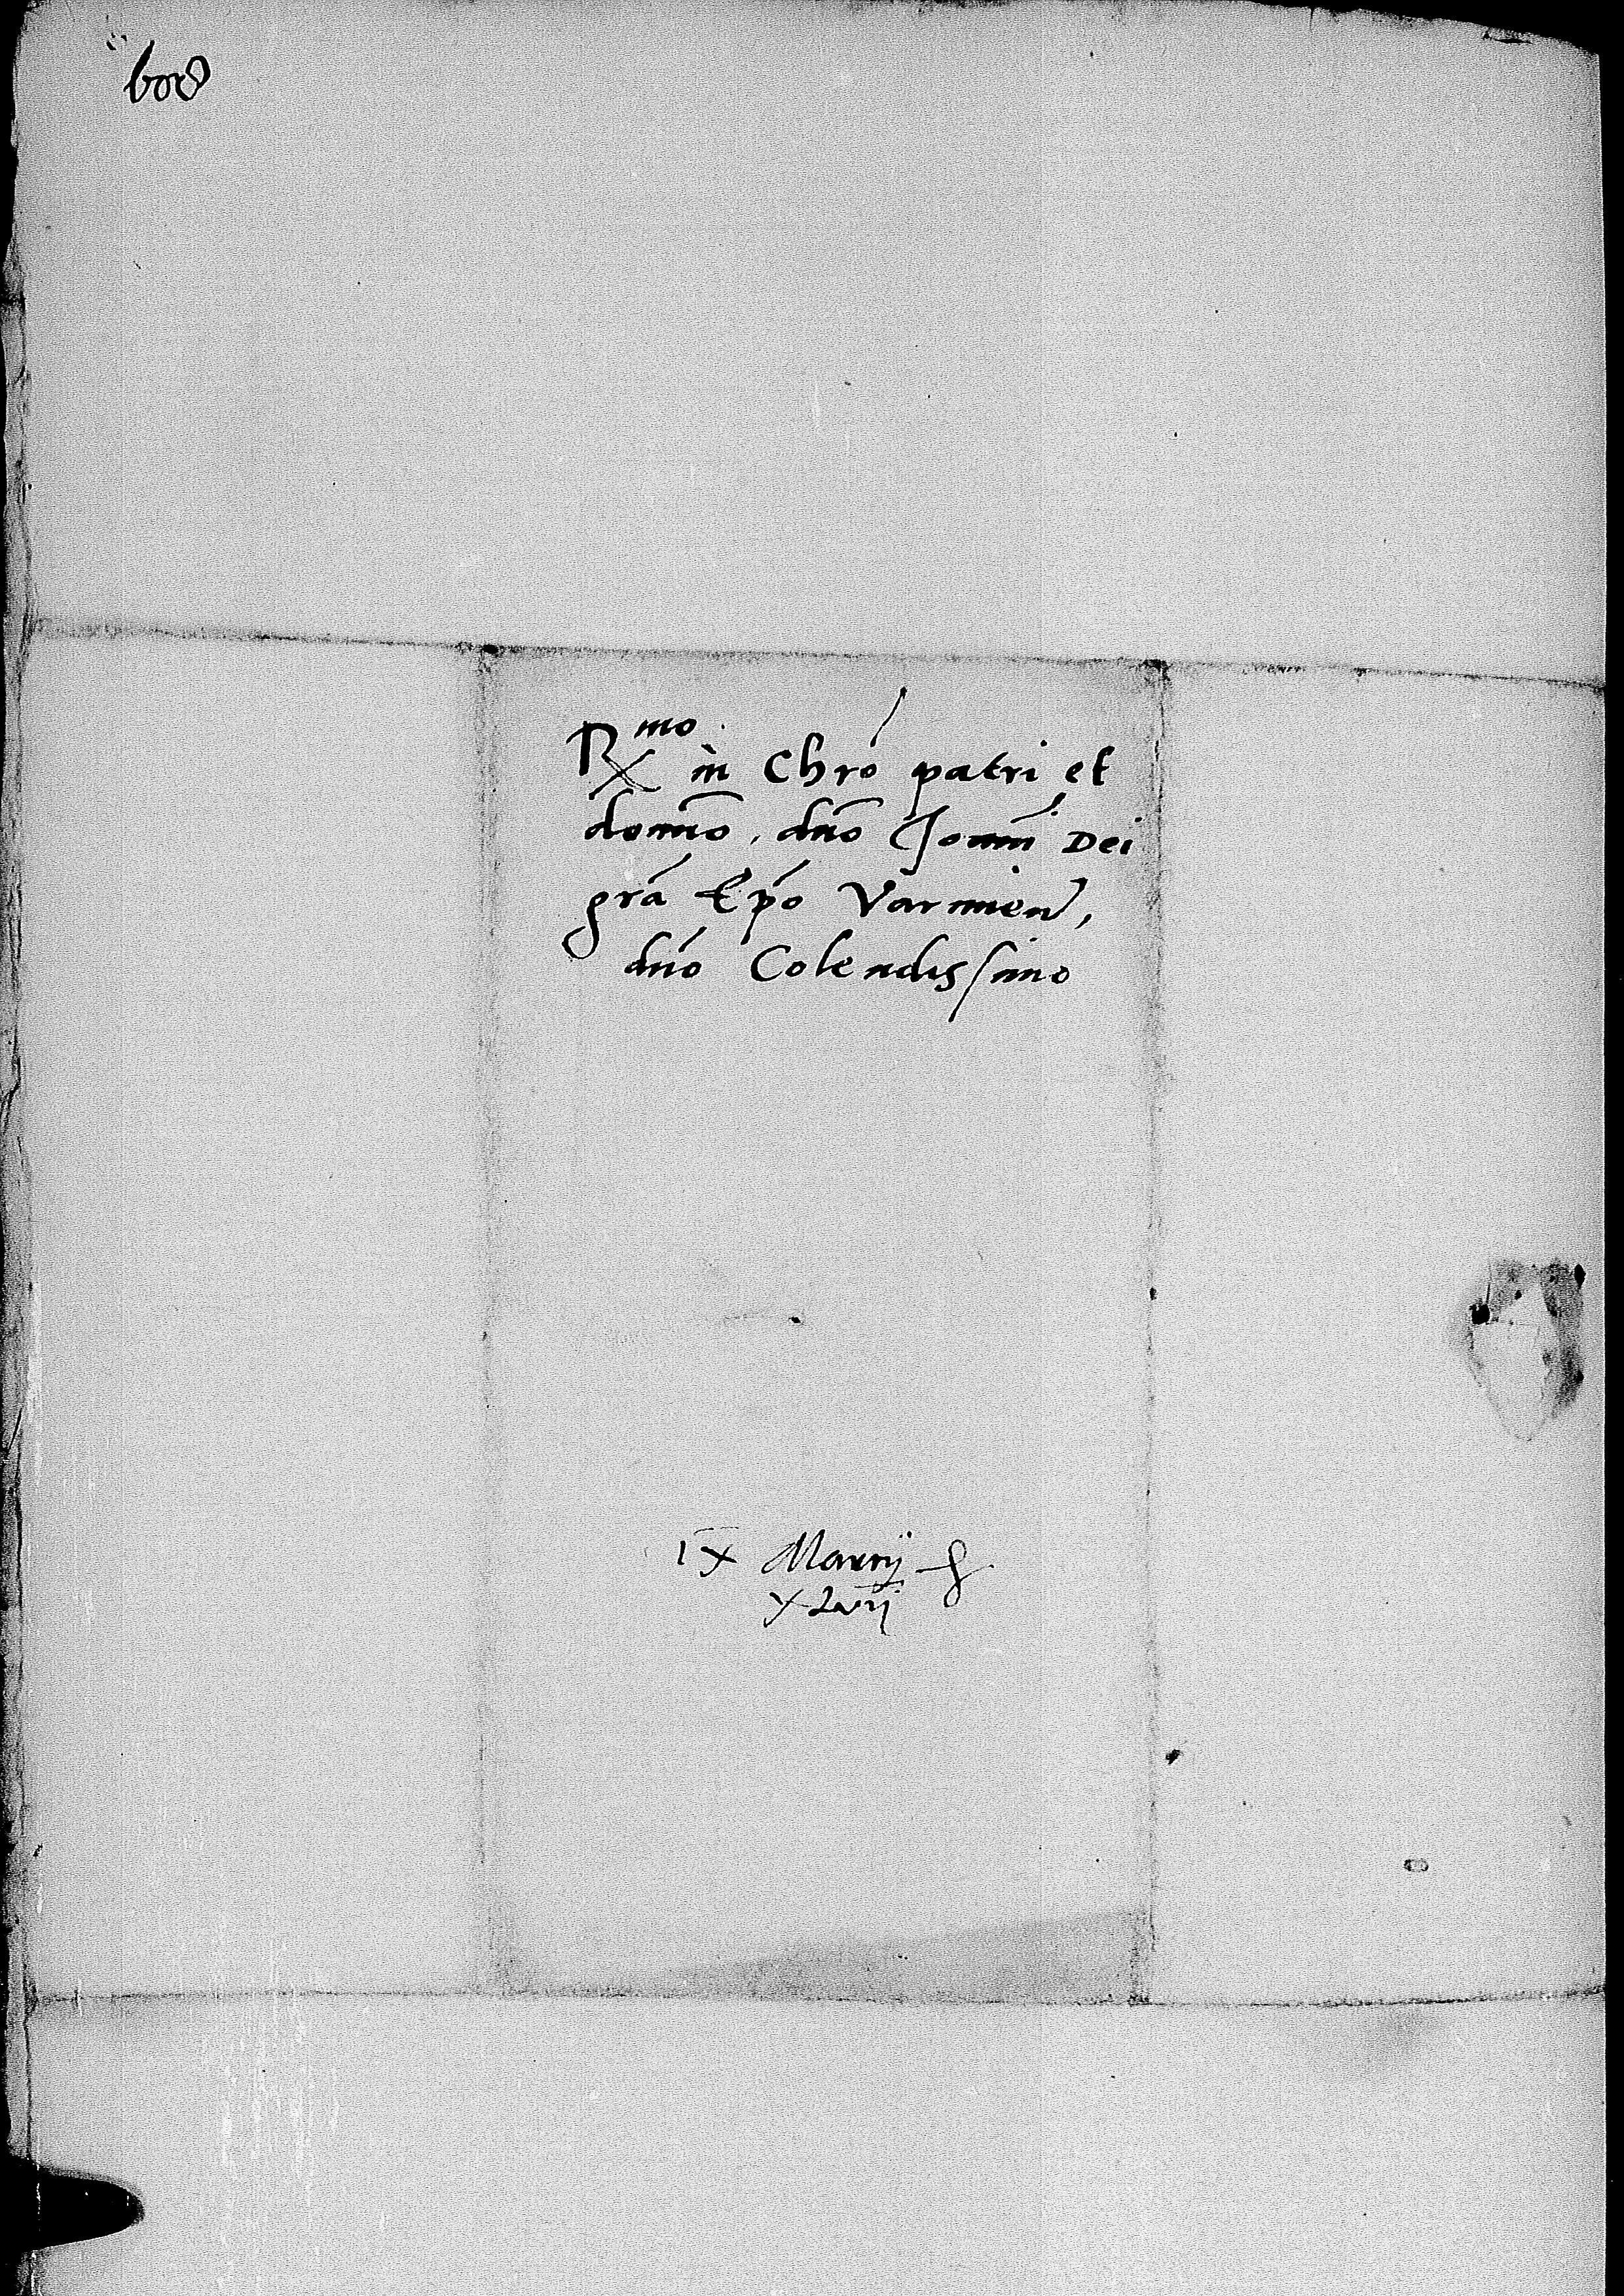 R^mo in Chro patri et
domno, dno Joanni Dei
gra Epo Varmien,
dno Colendissimo
IX Marcij
XLvij